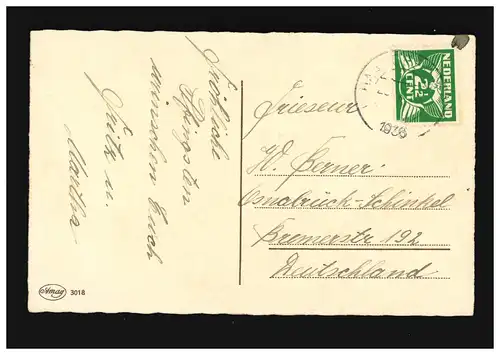 Fröhliche
Pfingsten
wünschen Euch
Fritz u.
Martha
Amag 3018
NEDERLAND
2½
CENT
1936
Frieseur
W. Berner
Osnabrück-Schinkel
Bremerstr 192
Deutschland